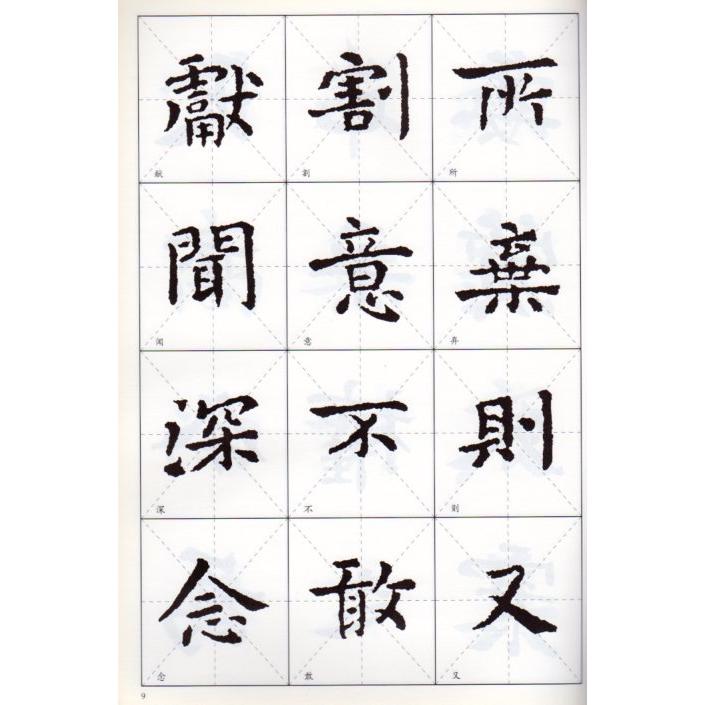 所棄則又
割意不敢
獻聞深念
所 弃 则 又
割 意 不 敢
献 闻 深 念
9